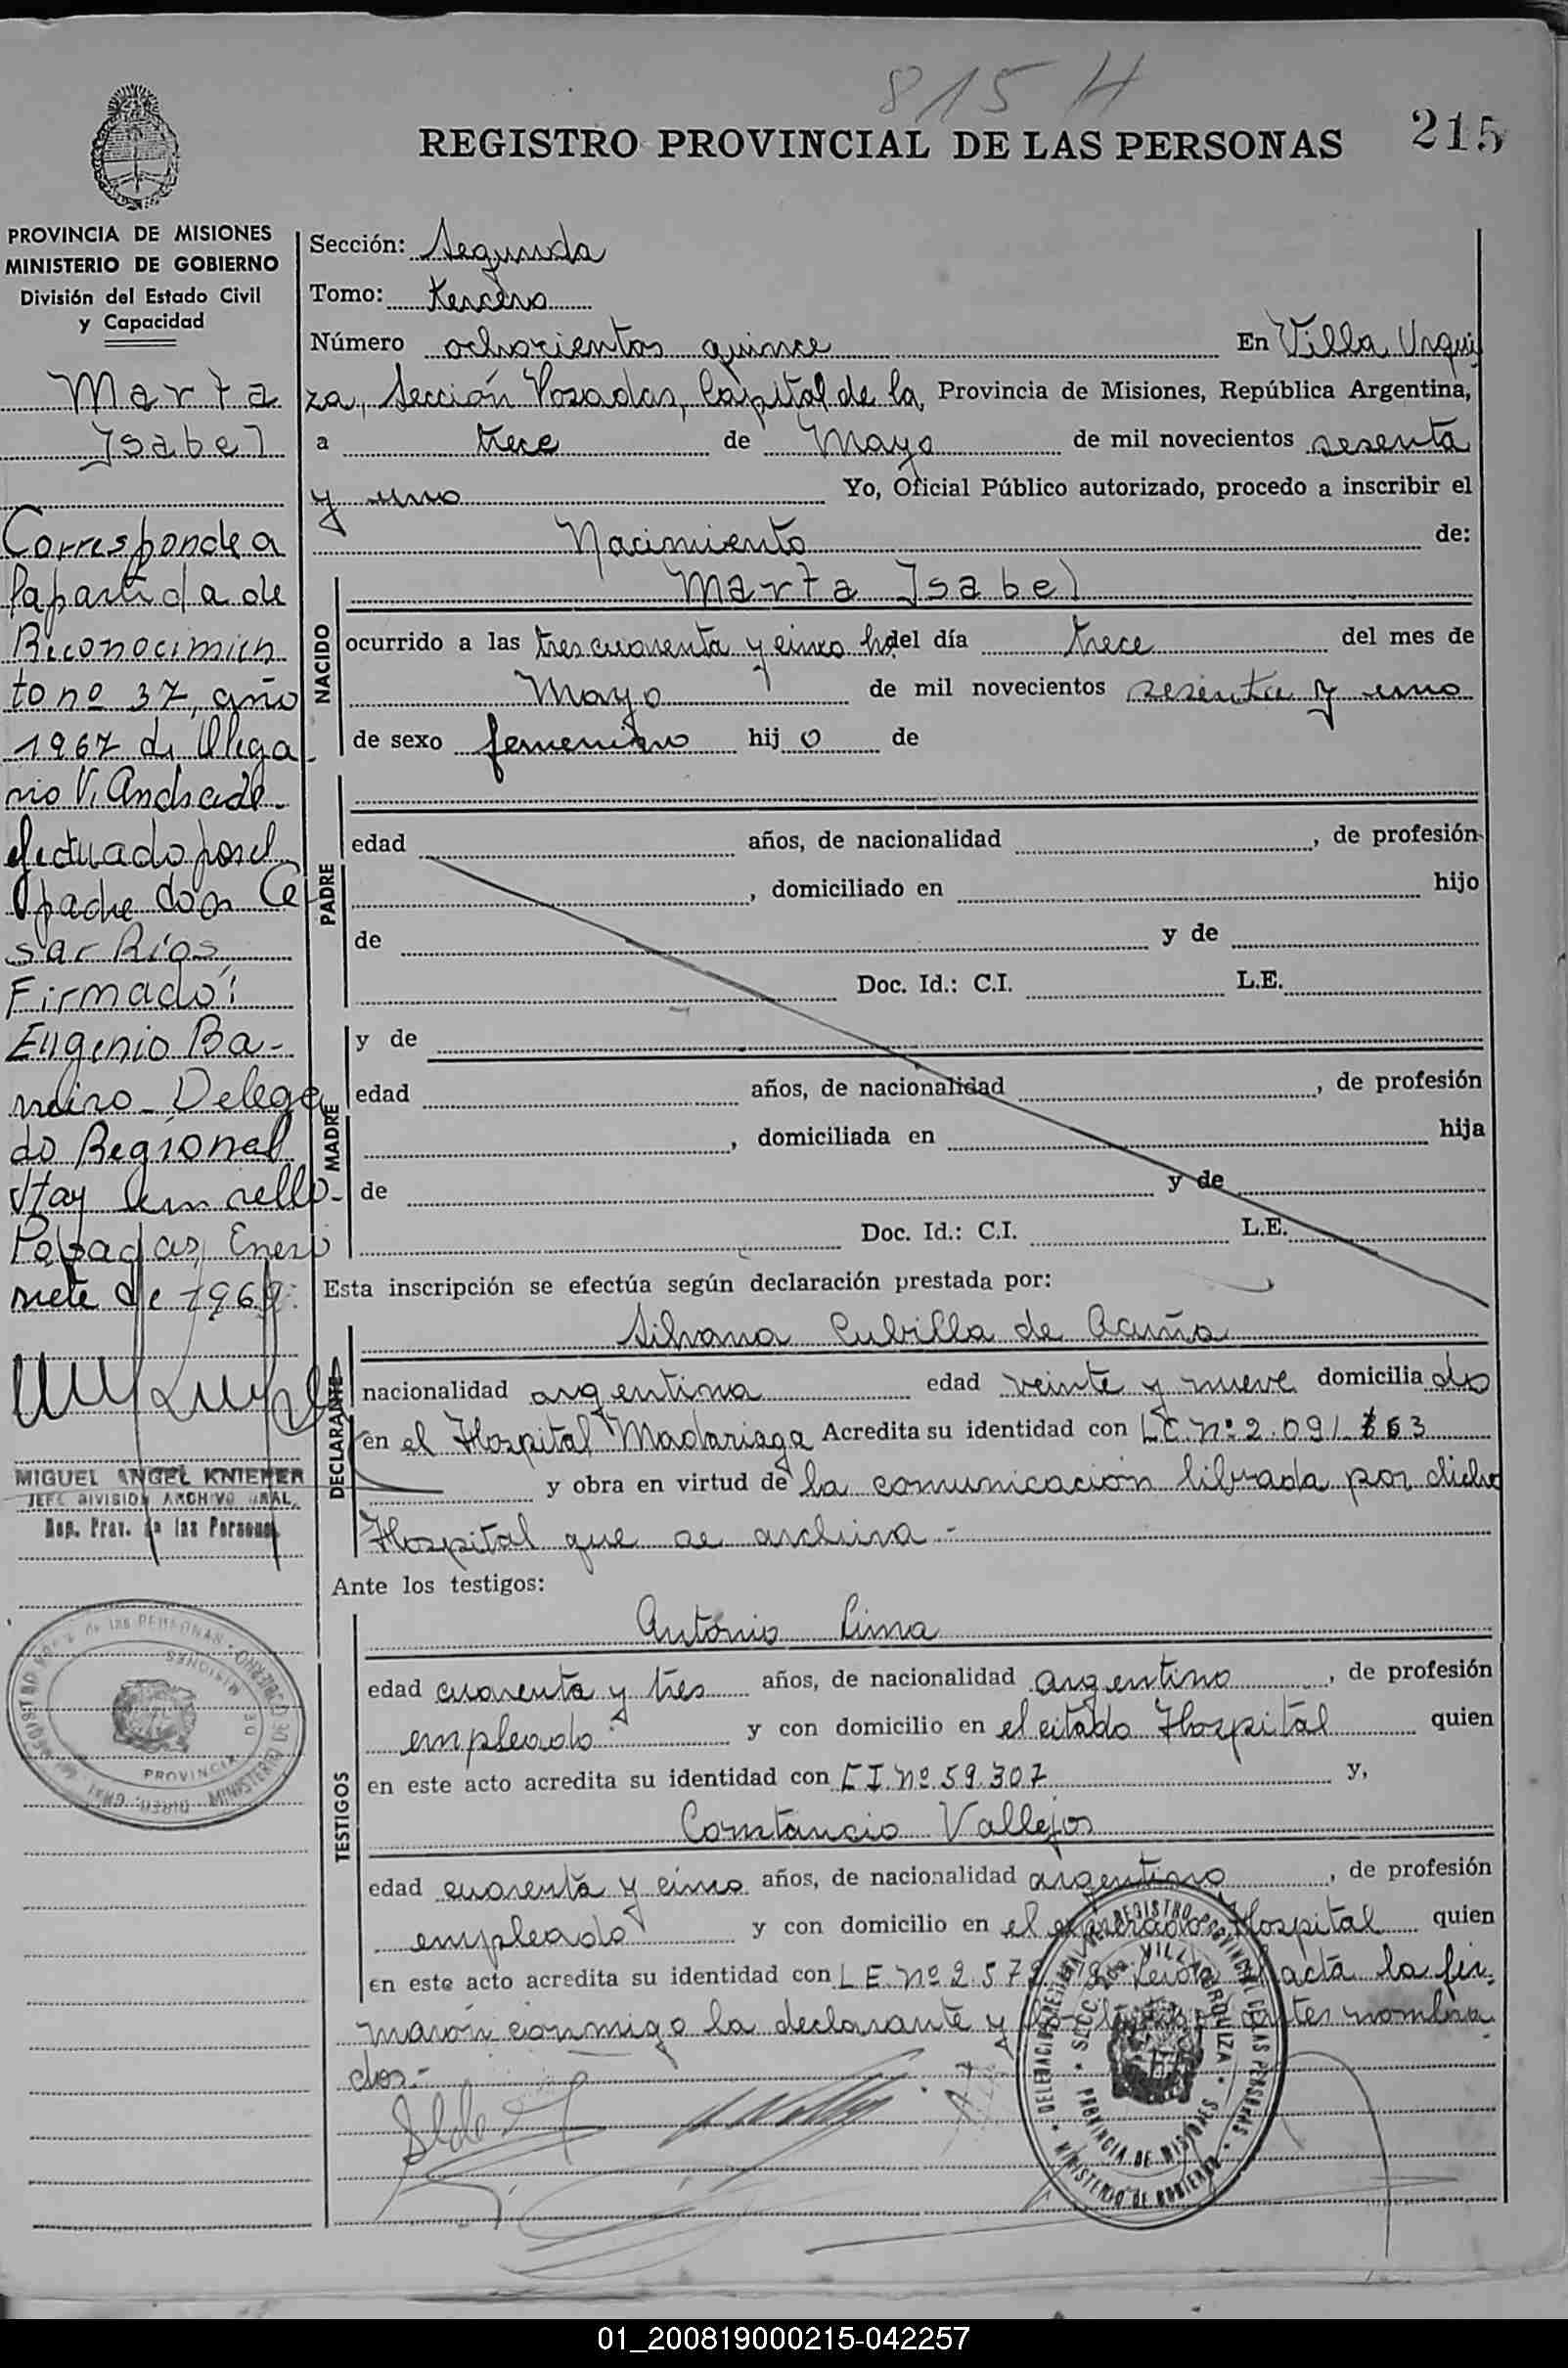 815 H
REGISTRO PROVINCIAL DE LAS PERSONAS
215
PROVINCIA DE MISIONES
MINISTERIO DE GOBIERNO
División del Estado Civil
y Capacidad
Marta
Isabel
Corresponde a
la partida de
Reconocimien
to nº 37, año
1967 de Olega
rio V. Andrade
efectuado por el
padre don Ce
sar Ríos
Firmado:
Eugenio Ba-
reiro - Delega
do Regional
Hay un sello-
Posadas, Enero
siete de 1969
MIGUEL ANGEL KNIENER
JEFE DIVISION ARCHIVO GRAL.
Rep. Prov. de las Personas
Sección: Segunda
Tomo: tercero
Número ochocientos quince En Villa Urqui
za, Sección Posadas, Capital de la, Provincia de Misiones, República Argentina,
a trece de Mayo de mil novecientos sesenta
y uno Yo, Oficial Público autorizado, procedo a inscribir el
Nacimiento de:
NACIDO
Marta Isabel
ocurrido a las tres cuarenta y cinco hs. del día trece del mes de
Mayo de mil novecientos sesenta y uno
de sexo femenino hij o de
PADRE
edad años, de nacionalidad , de profesión
, domiciliado en hijo
de y de
Doc. Id.: C.I. L.E.
MADRE
y de
edad años, de nacionalidad , de profesión
, domiciliada en hija
de y de
Doc. Id.: C.I. L.E.
Esta inscripción se efectúa según declaración prestada por:
DECLARANTE
Silvana Cubilla de Acuña
nacionalidad argentina edad veinte y nueve domicilia do
en el Hospital Madariaga Acredita su identidad con L.C. nº 2.091.
y obra en virtud de la comunicación librada por dicho
Hospital que se archiva.-
Ante los testigos:
TESTIGOS
Antonio Lima
edad cuarenta y tres años, de nacionalidad argentino, de profesión
empleado y con domicilio en el citado Hospital quien
en este acto acredita su identidad con C I nº 59.307 y,
Constancio Vallejos
edad cuarenta y cinco años, de nacionalidad argentino, de profesión
empleado y con domicilio en el Hospital quien
en este acto acredita su identidad con L E nº 2.57 acta la fir-
maron conmigo la declarante y antes nombra
dos.-
DELEGACION REGIONAL DEL REGISTRO PROVINCIAL DE LAS PERSONAS
MINISTERIO DE GOBIERNO
SECC. 2da. VILLA URQUIZA
PROVINCIA DE MISIONES
01_200819000215-042257